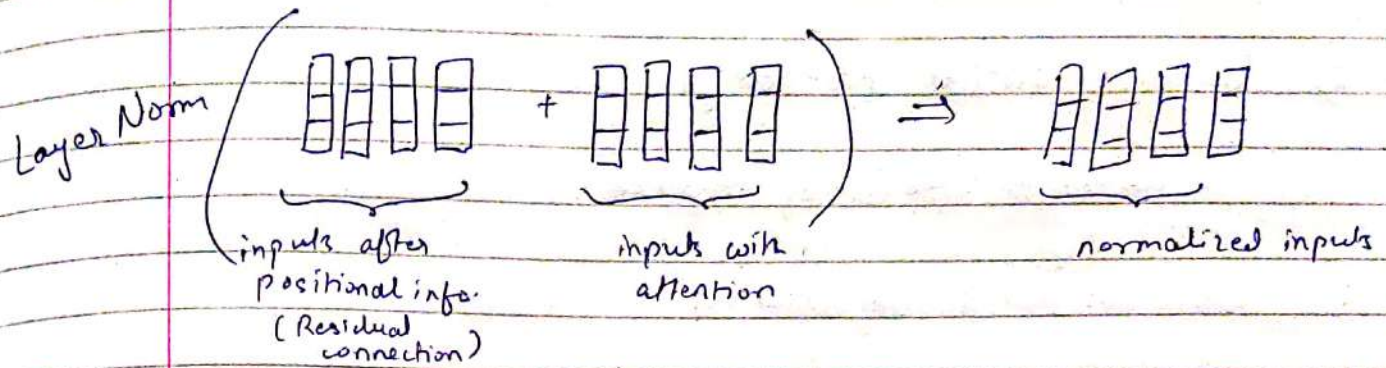 Layer Norm
+
⇒
inputs after
positional info.
(Residual
connection)
inputs with
attention
normalized inputs